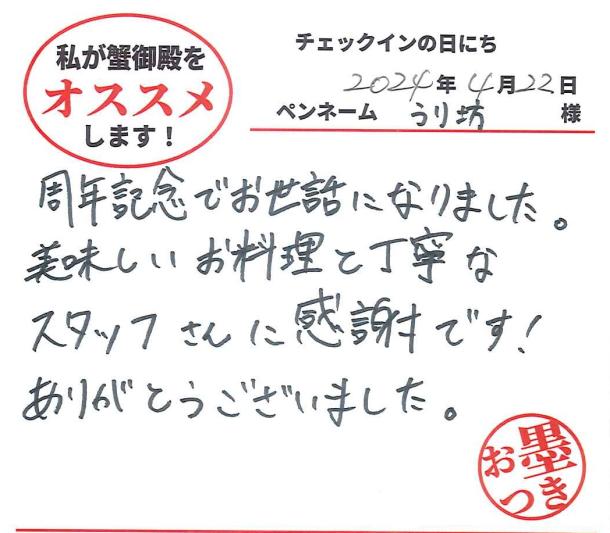 私が蟹御殿を
オススメ
します！
チェックインの日にち
2024年4月22日
ペンネーム うり坊 様
周年記念でお世話になりました。
美味しいお料理と丁寧な
スタッフさんに感謝です!
ありがとうございました。
お墨
つき